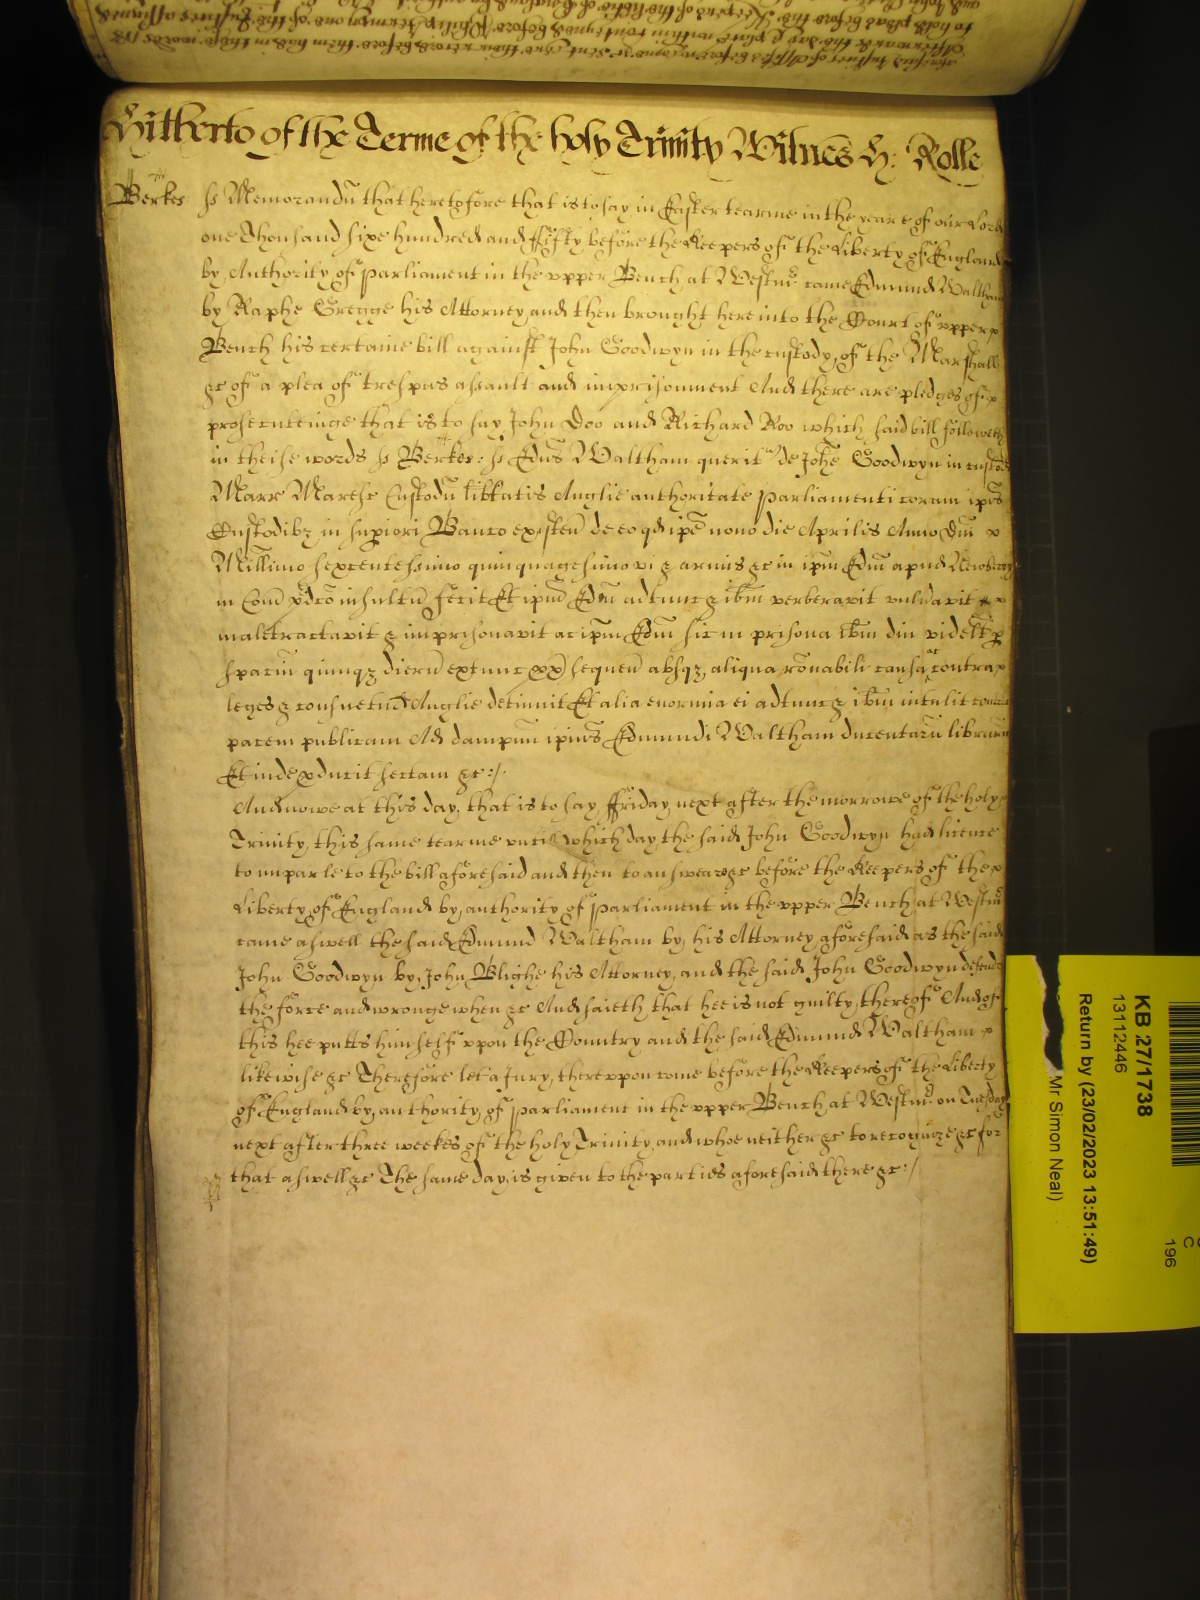 Hitherto of the Terme of the holy Trinity Witnes H: Rolle
Berkes ss Memorandũ that heretofore that is to say in Easter tearme in the yeare of our Lord
one Thousand sixe hundred and ffifty before the Keepers of the Liberty of England
by Authority of Parliament in the vpper Bench at Westm̃ came Edmund Waltham
by Raphe Gregge his Attorney and then brought here into the Court of vpper
Bench his certaine bill against John Goodwyn in the custody of the Marshall
&c of a plea of trespas assault and imprisonment And there are pledges of
prosecuteinge that is to say John Doo and Richard Roo which said bill followeth
in theise words ss Berkes: ss Edm̃s Waltham querit de Johẽ Goodwyn in custod
Marr Maresc Custodũ lib̃tatis Anglie authoritate Parliamenti coram ip̃is
Custodibz in sup̃iori Banco existeñ de eo qd ip̃e nono die Aprilis Anno Dñi
Millimo sexcentessimo quinquagesimo vi & armis &c in ip̃m Edm̃ apud Newbery
in Com̃ p̃dc̃o insultũ fecit Et ip̃m Edm̃ adtunc & ib̃m verberavit vuln̉avit &
maletractavit & imprisonavit ac ip̃m Edm̃ sic in prisona ib̃m diu videlt p
spaciũ quinqz dierũ extunc px̃ sequeñ absqz aliqua rõnabili causa ac contra
leges & consuetud Anglie detinuit Et alia enormia ei adtunc & ib̃m intulit contra
pacem publicam Ad dampnũ ip̃ius Edmundi Waltham ducentarũ librarũ
Et inde p̃ducit sectam &c:/.
And nowe at this day, that is to say ffriday next after the morrowe of the holy
Trinity, this same tearme vntill which day the said John Goodwyn had licence
to imparle to the bill aforesaid and then to answeare &c before the Keepers of the
Liberty of England by authority of Parliament in the vpper Bench at Westm̃
came aswell the said Edmund Waltham by his Attorney aforesaid as the said
John Goodwyn by John Blighe his Attorney, and the said John Goodwyn defends
the force and wronge when &c And saieth that hee is not guilty thereof And of
this hee putts himself vpon the Country and the said Edmund Waltham
likewise &c Therefore let a Jury, therevpon come before the Keepers of the Liberty
of England by authority of Parliament in the vpper Bench at Westm̃ on Tuesday
next after three weekes of the holy Trinity and whoe neither &c to recognize &c for
that aswell &c The same day is given to the parties aforesaid there &c:/
KB 27/1738
13112446
Return by (23/02/2023 13:51:49)
Mr Simon Neal)
C
196